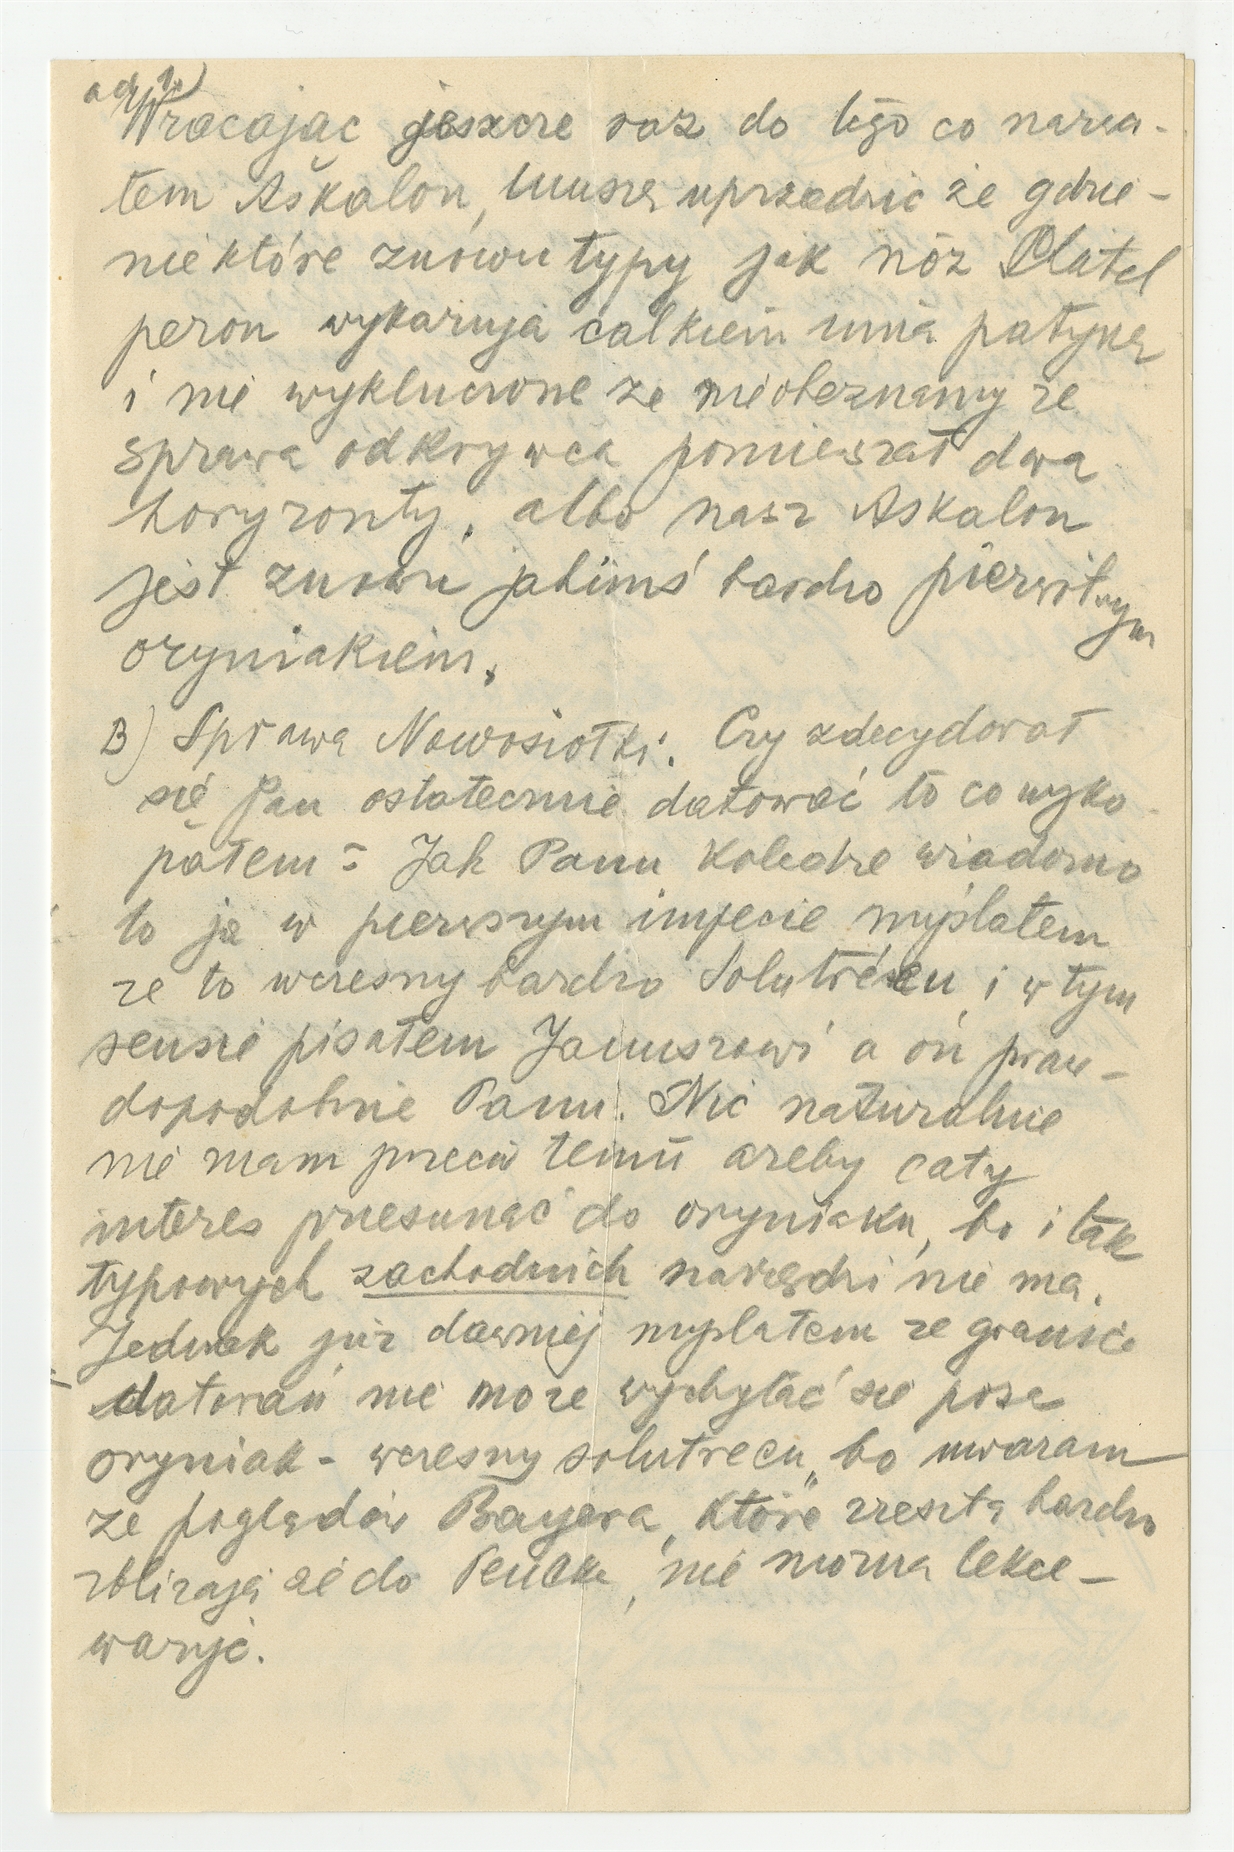 ad 1.)
Wracając jeszcze raz do tego co nazwa-
łem Aškalon, muszę uprzedzić że gdzie-
niektóre znowu typy jak nóż Châtel
peron wykazują całkiem inną patynę
i nie wykluczone że nieobeznany ze
sprawą odkrywca pomieszał dwa
horyzonty, albo nasz Askalon
jest znowu jakimś bardzo pierwitnym
oryniakiem.
B) Sprawa Nowosiołki. Czy zdecydował
się Pan ostatecznie datować to co wyko
pałem? Jak Panu Koledze wiadomo
to ja w pierwszym impecie myślałem
że to wczesny bardzo Solutréen i w tym
sensie pisałem Januszowi a on praw-
dopodobnie Panu. Nic naturalnie
nie mam przeciw temu ażeby cały
interes przesunąć do oryniaku, bo i tak
typowych zachodnich narzędzi nie ma.
Jednak już dawniej myślałem że granice
datowań nie może wychylać się poza
oryniak - wczesny solutreen, bo uważam
że poglądów Bayera, które zresztą bardzo
zbliżają się do Pencka, nie można lekce-
ważyć.